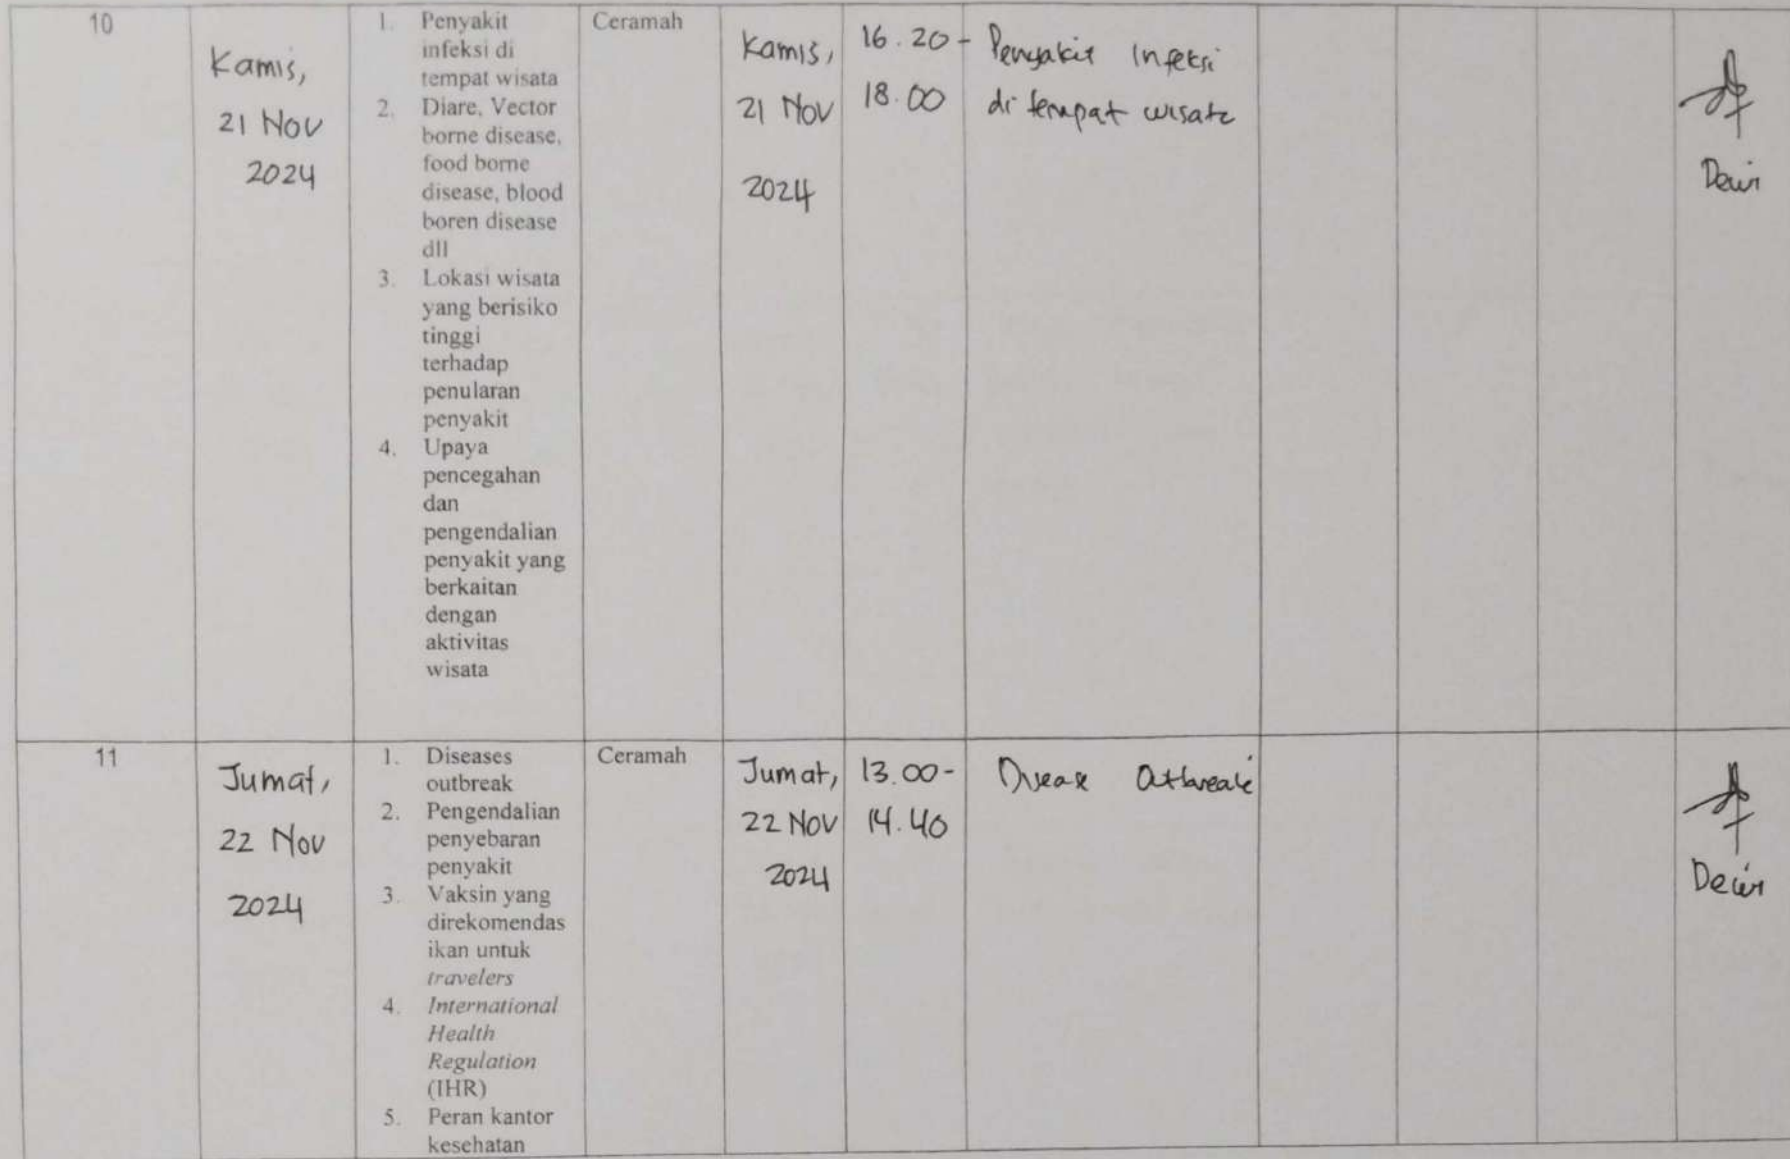 10
Kamis,
21 Nov
2024
1. Penyakit
infeksi di
tempat wisata
2. Diare, Vector
borne disease,
food borne
disease, blood
boren disease
dll
3. Lokasi wisata
yang berisiko
tinggi
terhadap
penularan
penyakit
4. Upaya
pencegahan
dan
pengendalian
penyakit yang
berkaitan
dengan
aktivitas
wisata
Ceramah
Kamis,
21 Nov
2024
16.20-
18.00
Penyakit Infeksi
di tempat wisata
Dewi
11
Jumat,
22 Nov
2024
1. Diseases
outbreak
2. Pengendalian
penyebaran
penyakit
3. Vaksin yang
direkomendas
ikan untuk
travelers
4. International
Health
Regulation
(IHR)
5. Peran kantor
kesehatan
Ceramah
Jumat,
22 Nov
2024
13.00-
14.40
Disease Outbreak
Dewi